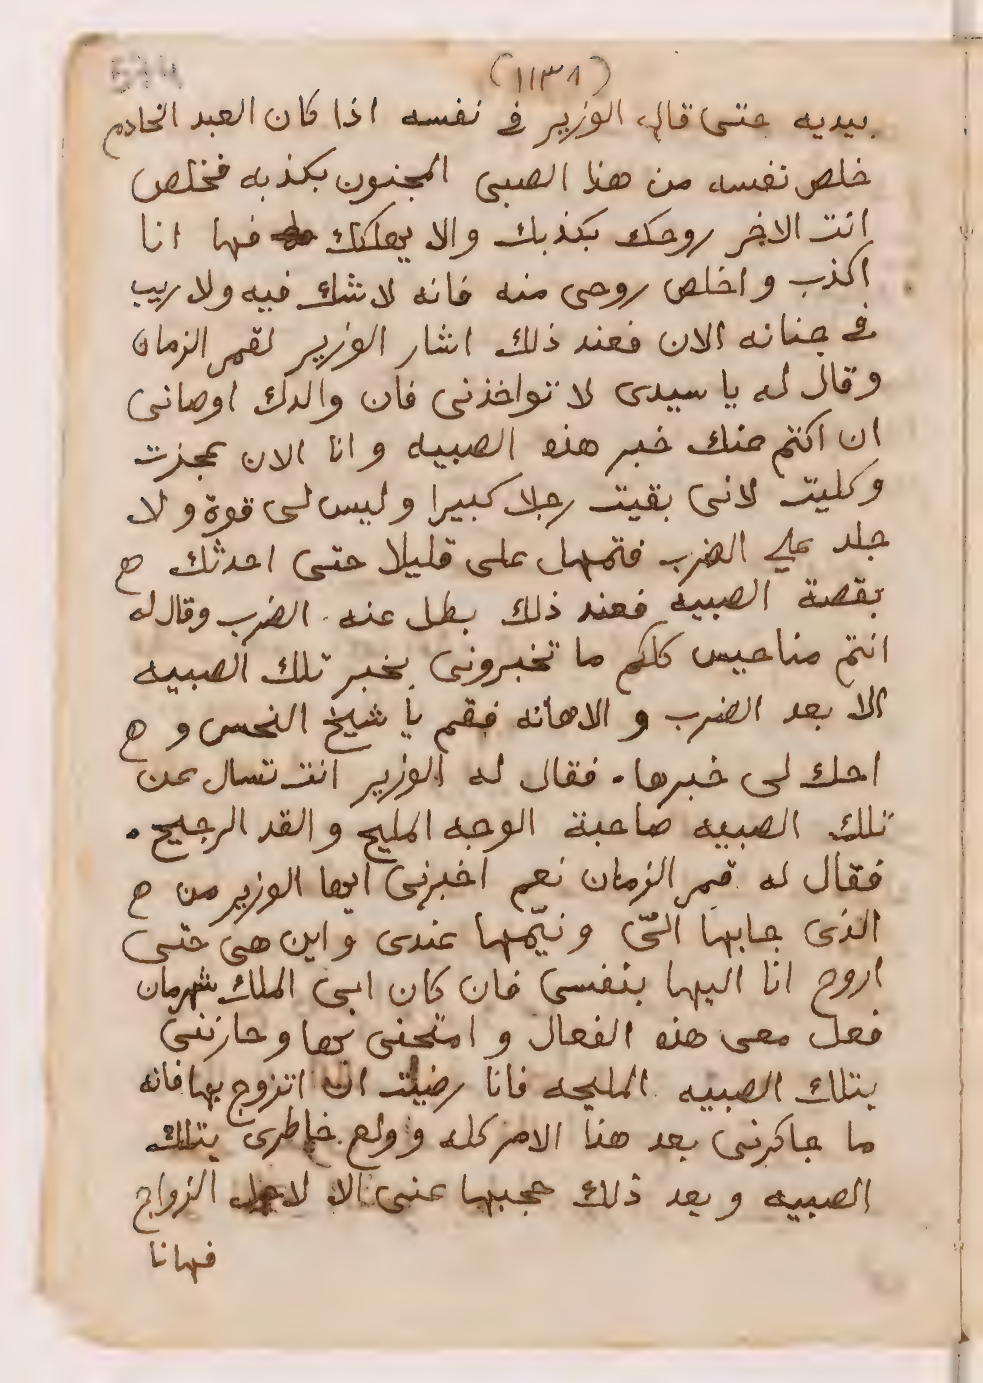 (١١٣٨)
بيديه حتى قال الوزير في نفسه اذا كان العبد الخادم
خلص نفسه من هذا الصبي المجنون بكذبه فخلص
انت الاخر روحك بكذبك والا يهلكك فها انا
اكذب واخلص روحي منه فانه لا شك فيه ولا ريب
في جنانه الان فعند ذلك اشار الوزير لقمر الزمان
وقال له يا سيدى لا تواخذنى فان والدك اوصانى
ان اكتم منك خبر هذه الصبيه وانا الان عجزت
وكليت لانى بقيت رجلا كبيرا وليس لى قوة ولا
جلد على الضرب فتمهل على قليلا حتى احدثك ح
بقصة الصبيه فعند ذلك بطل عنه الضرب وقال له
انتم مناحيس كلكم ما تخبرونى بخبر تلك الصبيه
الا بعد الضرب والاهانه فقم يا شيخ النحس و ح
احك لى خبرها. فقال له الوزير انت تسال عن
تلك الصبيه صاحبة الوجه المليح والقد الرجيح.
فقال له قمر الزمان نعم اخبرنى ايها الوزير من ح
الذى جابها الىّ ونيّمها عندى واين هى حتى
اروح انا اليها بنفسى فان كان ابى الملك شهرمان
فعل معى هذه الفعال وامتحنى بها وحازننى
بتلك الصبيه المليحه فانا رضيت ان اتزوج بها فانه
ما جاكرنى بعد هذا الامر كله وولع خاطرى بتلك
الصبيه وبعد ذلك حجبها عنى الا لاجل الزواج
فها انا